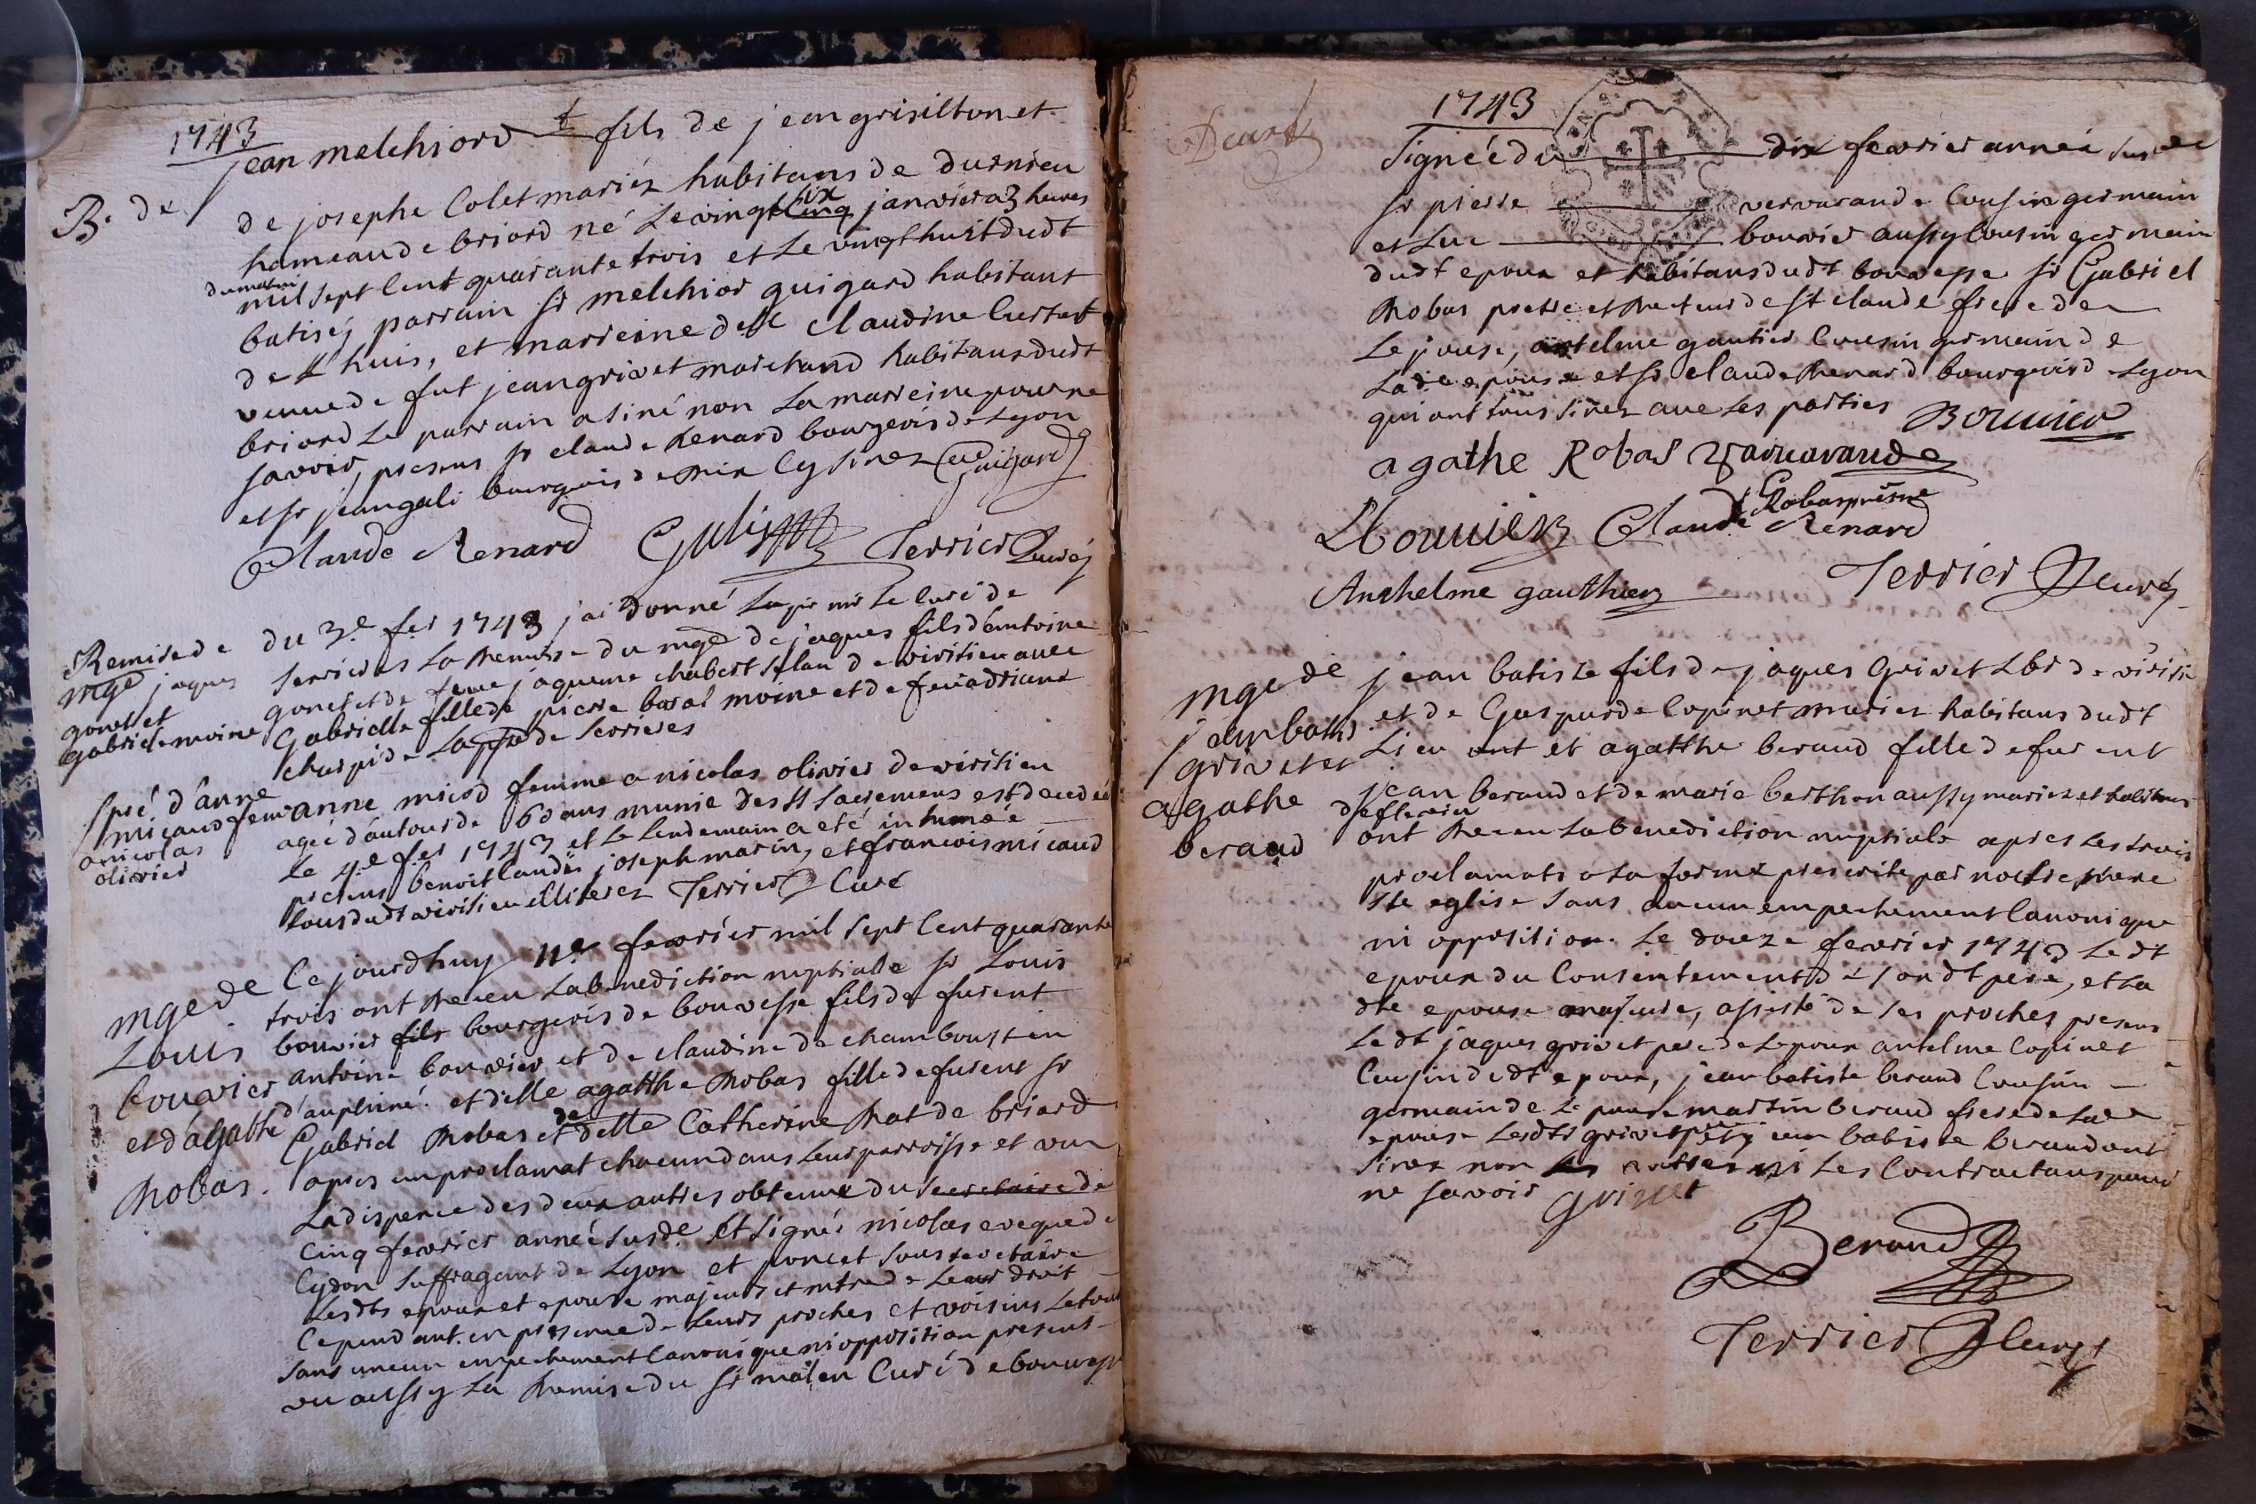 1743
B. de
jean melchiord fils de jean grisilton et
de josephe Colet mariez habitans de durnieu
hameau de briord né Le vingt cinq six janvier a 3 heures
du matin
mil sept Cent quarante trois et Le vingt huit dudt
batisé, parrain sr melchior guigard habitant
de huis, et marreine delle claudine
veuve de fut jean grivet marchand habitans dudt
briord Le parrain a siné non La marreine pour ne
savoir, presens sr claude Renard bourgeois de Lyon
et sr jean gali bourgeois de Cy sinez Guigard
Claude Renard Terrier Curé
Remise de
mge jaques
gonet et
gabriele moine
du 3.e fer 1743 j'ai donné mr Le Curé de
Serrieres La Remise du mge de jaques fils d'antoine
gonet et de feue jaqueme chabert de virisieu avec
Gabrielle fille de pierre moine et de feue adriane
de La ppsse de Serrieres
Spré d'anne
micaud feme
a nicolas
olivier
anne micod femme a nicolas olivier de virisieu
agée d'autour de 60 ans munie des sts sacremens est decedée
Le 4.e fer 1743 et Le Lendemain a eté inhumée
presens benoit joseph marin, et francois micaud
tous dudt virisieu illiterez Terrier Curé
mge de
Louis
bouvier
et d'agathe
Robas.
Ce jourdhuy 11.e fevrier mil sept Cent quarante
trois ont Receu La benediction nuptialle sr Louis
bouvier fils bourgeois de bouvesse fils de furent
antoine bouvier et de claudine de chamboust en
d'auphiné. et delle agatthe Robas fille de furent sr
Gabriel Robas et de delle Catherine Rat de briord
apres un proclamat chacun dans Leur parroisse et vu
La dispence des deux autres obtenue du secretaire de
Cinq fevrier année susde. Et signée nicolas eveque de
Cydon suffragant de Lyon et poncet sous secretaire
Lesdts epoux et epouse majeurs et mtre de Leur droit
Cependant en presence de Leurs proches et voisins Le tout
sans aucun empechement Canonique ni opposition present
vu aussy La Remise du sr Curé de bouvesse
1743
Signée du dix fevrier année susde
sr pierre vervarande Cousin germain
et Luc bouvier aussy Cousin germain
dudt epoux et habitans dudt bouvesse sr Gabriel
Robas pretre et Recteur de st claude frere de
Lepouse, antelme gautier Cousin germain de
Lade epouse et sr claude Renard bourgeois de Lyon
qui ont tous sinez avec Les parties Bouvier
agathe Robas Varvarande
G Robas prestre
LBouvier Claude Renard
Anthelme gauthier Terrier Curé
mge de
jean batte
grivet et
agathe
beraud
jean batiste fils de jaques Grivet Lbr de virisi
et de Gasparde Copinet mariez habitans dudt
Lieu ont et agatthe beraud fille de furent
jean beraud et de marie berthon aussy mariez et habitans
ont Receu La benediction nuptiale apres Les trois
proclamats a La forme prescrite par nostre mere
Ste eglise sans aucun empechement Canonique
ni opposition. Le douze fevrier 1743 Ledt
epoux du Consentement de son dt pere, et La
dte epouse majeure, assisté de ses proches presens
Ledt jaques grivet pere de Lepoux antelme Copinet
Cousin dudt epoux, jean batiste beraud Cousin
germain de Lepouse martin beraud frere de Lade
epouse Lesdts grivet pere jean batiste beraud ont
sinez non Les autres ni Les Contractans pour
ne savoir Grivet
Beraud
Terrier Curé